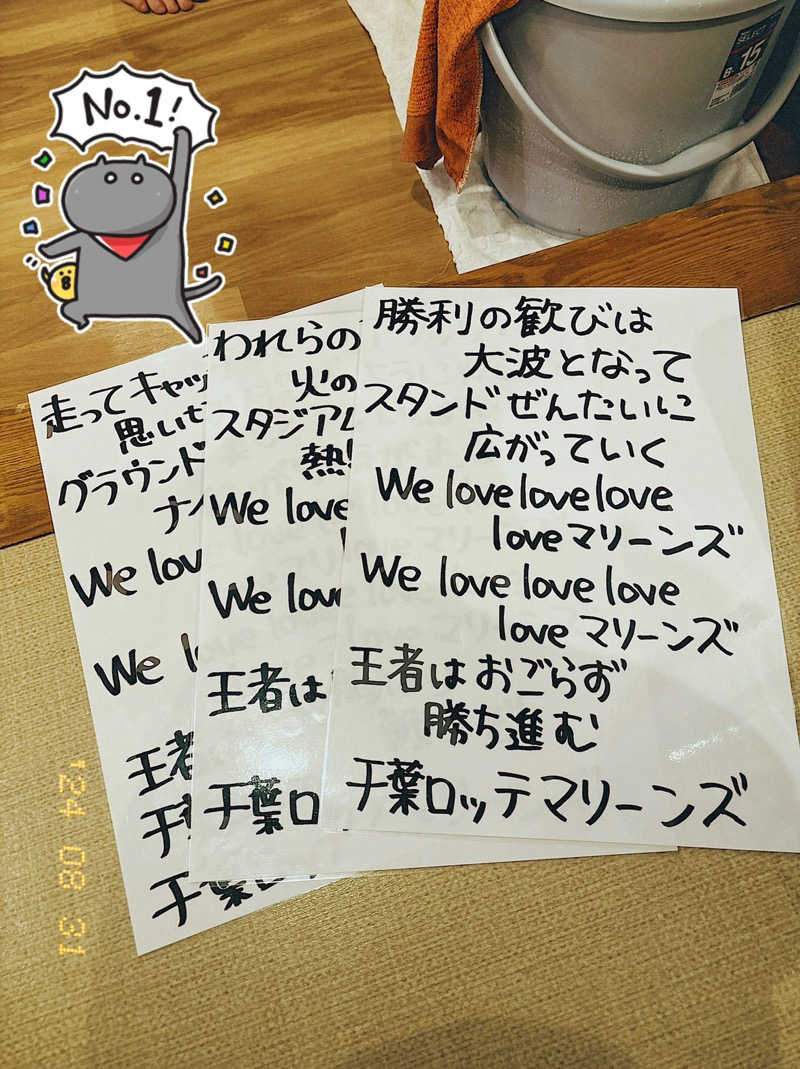 No.1!
SELECT
B-15
走ってキャッ
思い
グラウンド
ナイ
We lov
We l
王者
千
千葉ロ
われらの
火の
スタジアム
熱
We love
We love
王者は
千葉ロ
勝利の歓びは
大波となって
スタンドぜんたいに
広がっていく
We lovelovelove
loveマリーンズ
We love love love
loveマリーンズ
王者はおごらず
勝ち進む
千葉ロッテマリーンズ
'24 08 31